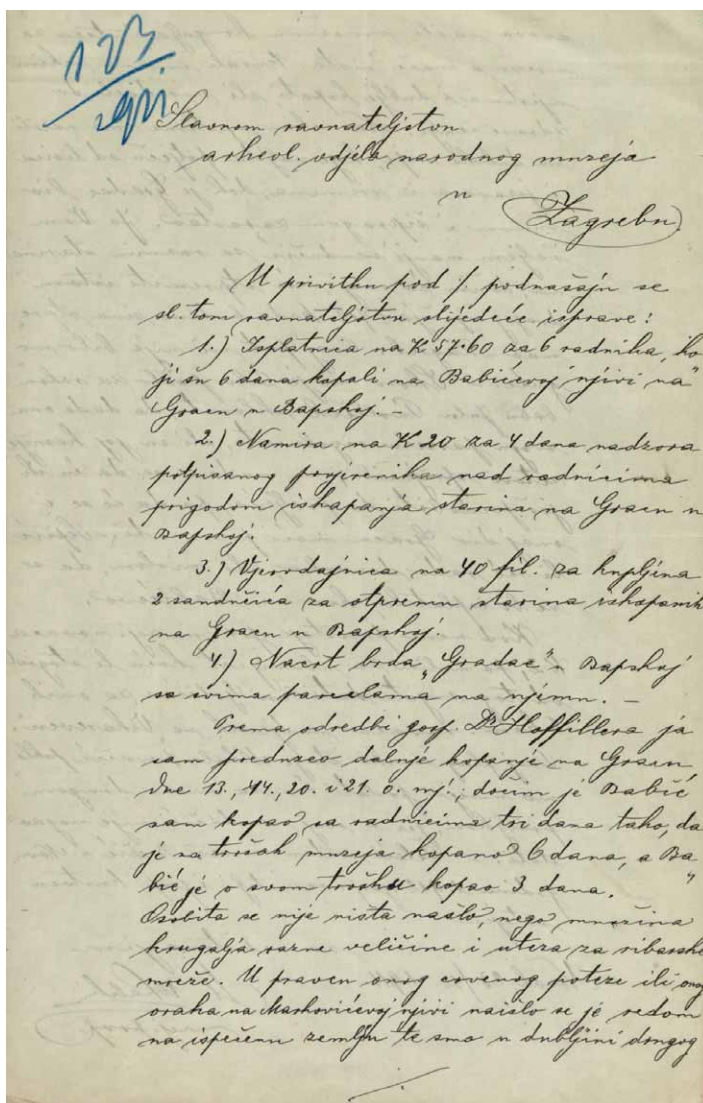 123
Slavnom ravnateljstvu
arheol. odjela narodnog muzeja
u
Zagrebu
U privitku pod /. podnašaju se
sl. tom ravnateljstvu slijedeće isprave:
1.) Isplatnica na K 57·60 za 6 radnika, ko
ji su 6 dana kopali na Babićevoj njivi na "
Gracu u Bapskoj. –
2.) Namira na K 20 za 4 dana nadzora
potpisanog povjerenika nad radnicima
prigodom iskapanja starina na Gracu u
Bapskoj.
3.) Vjerodajnica na 40 fil. za kupljena
2 sandučića za otpremu starina iskopanih
na Gracu u Bapskoj.
4.) Nacrt brda "Gradac" u Bapskoj
sa svima parcelama na njimu. –
Prema odredbi gosp. Dr Hoffillera ja
sam preduzeo dalnje kopanje na Gracu
dne 13., 14., 20. i 21. o. mj.; dočim je Babić
sam kopao sa radnicima tri dana tako, da
je na trošak muzeja kopano 6 dana, a Ba
bić je o svom trošku kopao 3 dana. "
Osobita se nije ništa našlo, nego množina
krugalja razne veličine i uteza za ribarske
mreže. U pravcu onog crvenog poteze ili onog
oraha na Markovićevoj njivi naišlo se je redom
na ispečenu zemlju te smo u dubljini drugog
./.